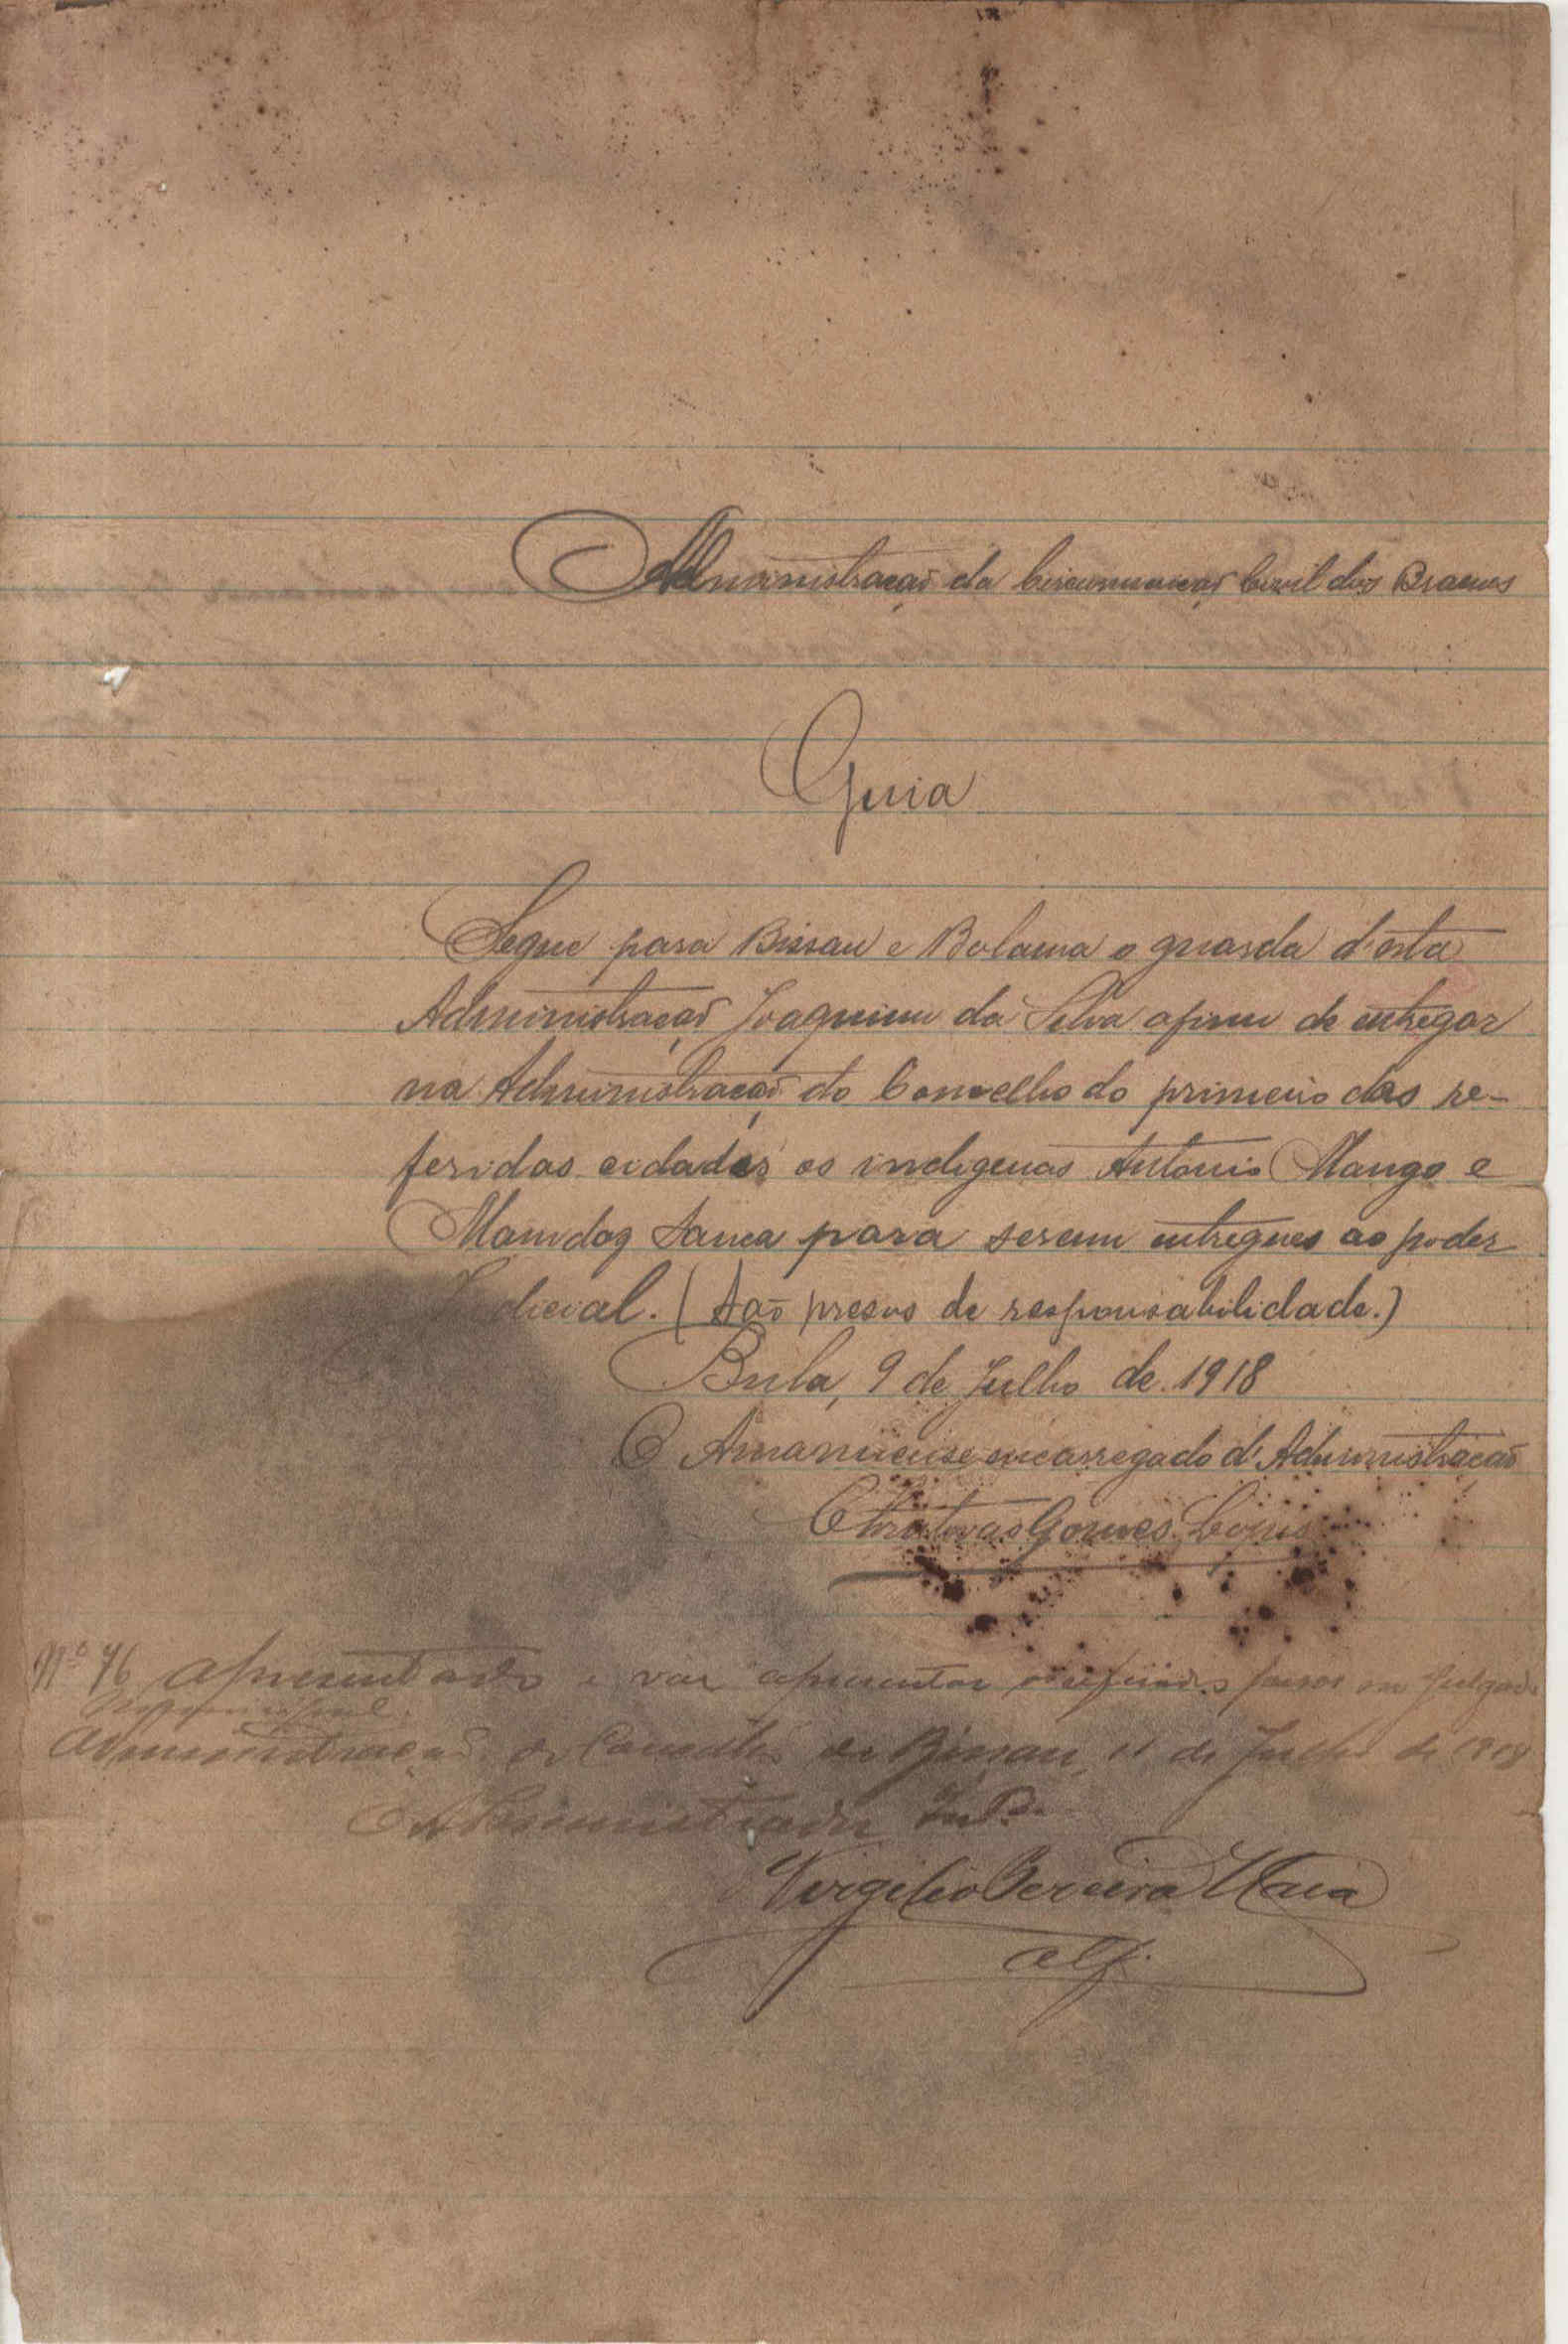 Administração da Circunscrição Civil dos Brames
Guia
Segue para Bissau e Bolama o guarda d'esta
Administração Joaquim da Silva afim de entregar
na Administração do Concelho do primeiro das re-
feridas cidades os indigenas Antonio Mango e
para serem entregues ao poder
Judicial. (São presos de responsabilidade.)
Bula, 9 de Julho de 1918
O Amanuense encarregado d'Administração
Christovão Gomes Lopes
Nº 76 Apresentado e vai apresentar os referidos presos no Julgado
Municipal.
Administração do Concelho de Bissau, 11 de Julho de 1918
O Administrador
Virgilio Pereira Maia
Alf.